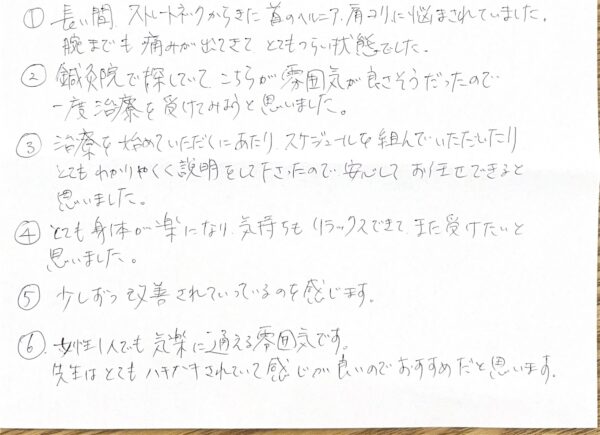 ① 長い間、ストレートネックからきた首のヘルニア、肩コリに悩まされていました。
腕までも痛みが出てきてとてもつらい状態でした。
② 鍼灸院で探していて、こちらが雰囲気が良さそうだったので
一度治療を受けてみようと思いました。
③ 治療を始めていただくにあたり、スケジュールを組んでいただいたり
とてもわかりやすく説明をして下さったので安心してお任せできると
思いました。
④ とても身体が楽になり、気持ちもリラックスできて、また受けたいと
思いました。
⑤ 少しずつ改善されていっているのを感じます。
⑥ 女性1人でも気楽に通える雰囲気です。
先生はとてもハキハキされていて感じが良いのでおすすめだと思います。